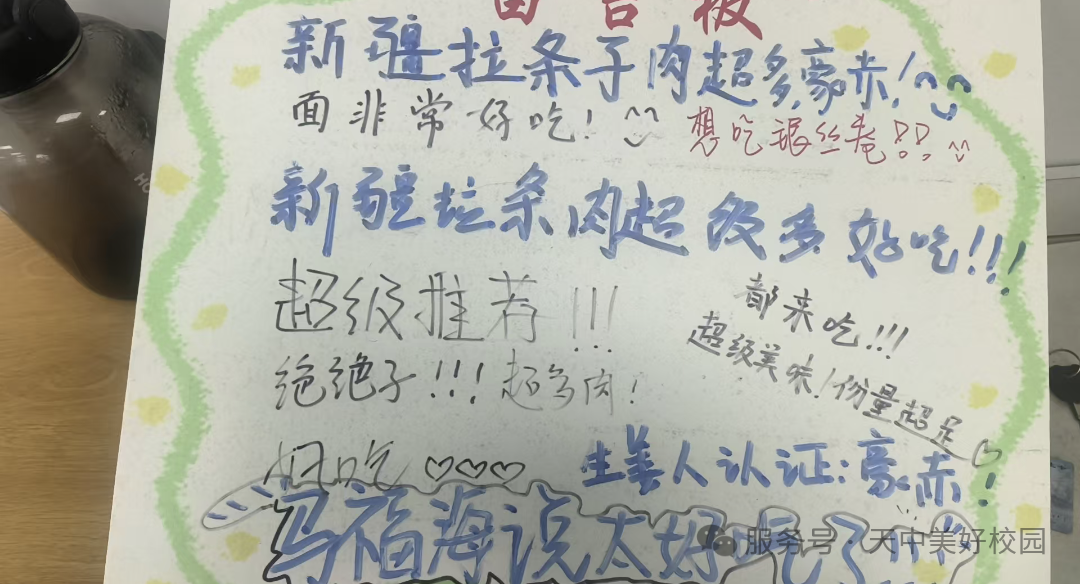 留言板
新疆拉条子肉超多,豪赤!
面非常好吃!
想吃银丝卷!!
新疆拉条肉超级多好吃!!!
超级推荐!!!
都来吃!!!
超级美味!份量超足
绝绝子!!!超多肉!
好吃♡♡♡
生美人认证:豪赤!
马福海说太好吃了
服务号·天中美好校园
HO